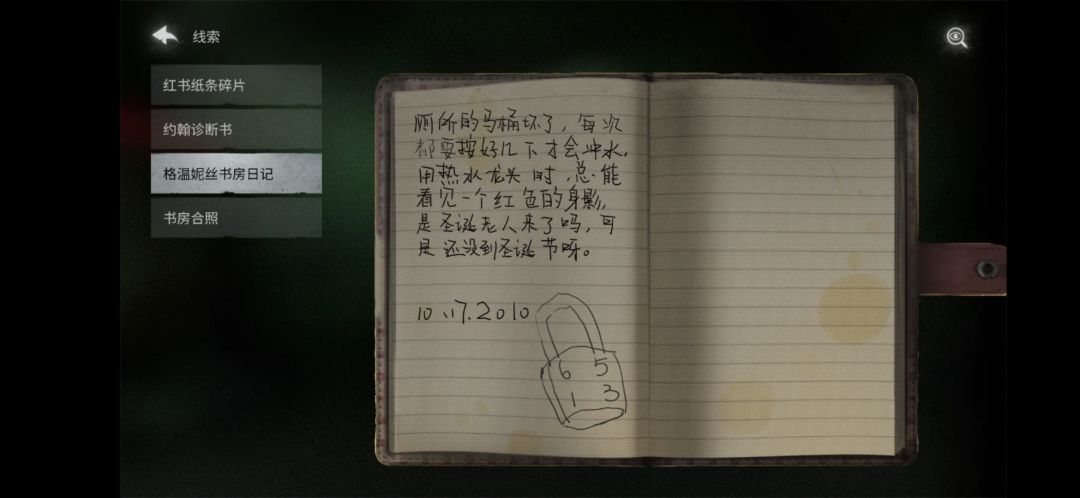 线索
红书纸条碎片
约翰诊断书
格温妮丝书房日记
书房合照
厕所的马桶坏了，每次
都要按好几下才会冲水，
用热水龙头时，总能
看见一个红色的身影，
是圣诞老人来了吗，可
是还没到圣诞节呀。
10.17.2010
6 5
1 3